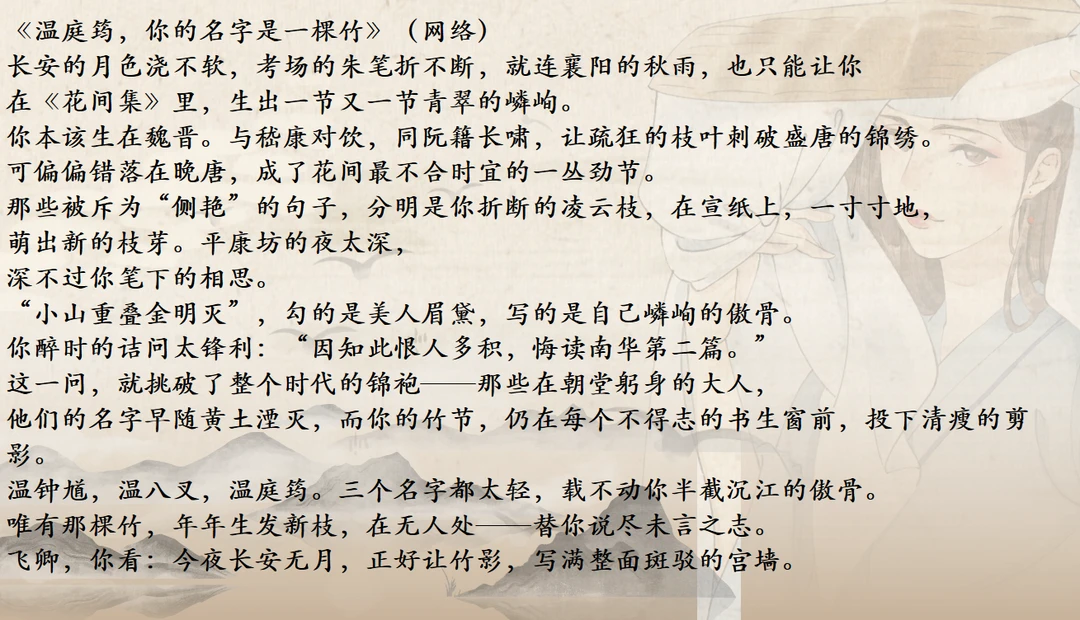 《温庭筠，你的名字是一棵竹》（网络）
长安的月色浇不软，考场的朱笔折不断，就连襄阳的秋雨，也只能让你
在《花间集》里，生出一节又一节青翠的嶙峋。
你本该生在魏晋。与嵇康对饮，同阮籍长啸，让疏狂的枝叶刺破盛唐的锦绣。
可偏偏错落在晚唐，成了花间最不合时宜的一丛劲节。
那些被斥为“侧艳”的句子，分明是你折断的凌云枝，在宣纸上，一寸寸地，
萌出新的枝芽。平康坊的夜太深，
深不过你笔下的相思。
“小山重叠金明灭”，勾的是美人眉黛，写的是自己嶙峋的傲骨。
你醉时的诘问太锋利：“因知此恨人多积，悔读南华第二篇。”
这一问，就挑破了整个时代的锦袍——那些在朝堂躬身的大人，
他们的名字早随黄土湮灭，而你的竹节，仍在每个不得志的书生窗前，投下清瘦的剪
影。
温钟馗，温八叉，温庭筠。三个名字都太轻，载不动你半截沉江的傲骨。
唯有那棵竹，年年生发新枝，在无人处——替你说尽未言之志。
飞卿，你看：今夜长安无月，正好让竹影，写满整面斑驳的宫墙。